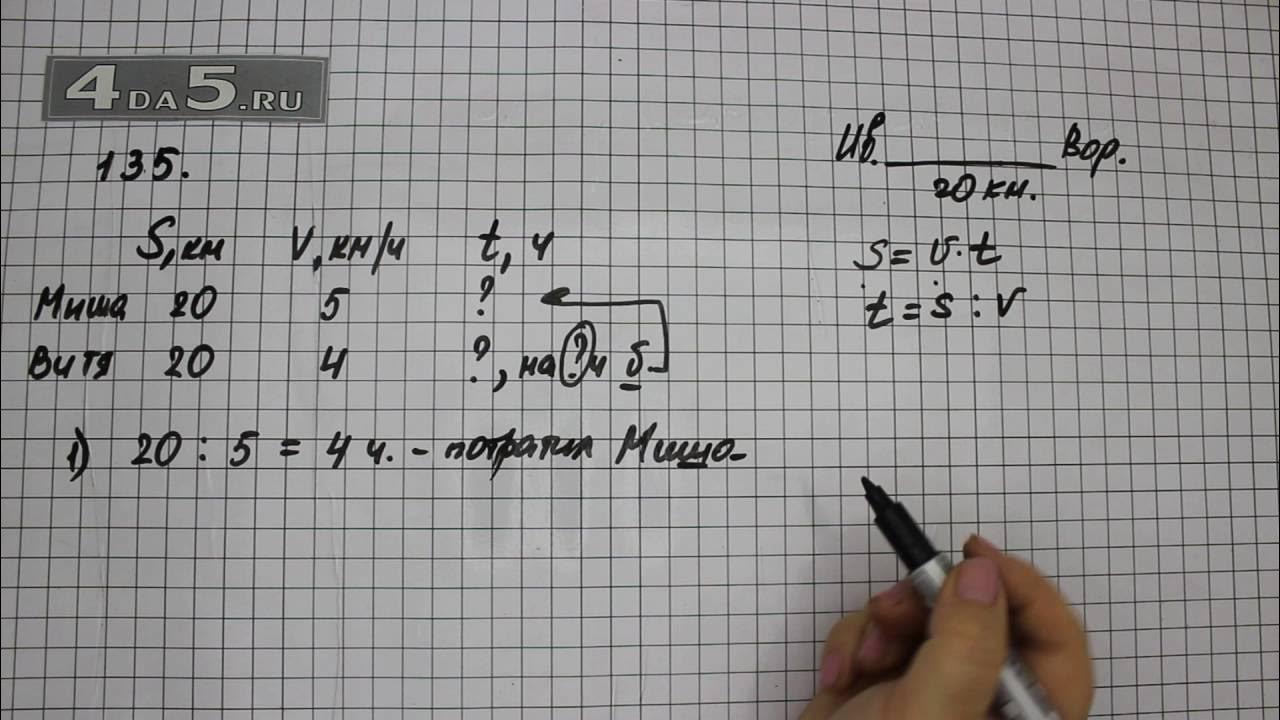 4DA5.RU
135.
Ив. Вор.
20 км.
S, км V, км/ч t, ч
Миша 20 5 ?
Витя 20 4 ?, на ? ч б.
S = v · t
t = s : v
1) 20 : 5 = 4 ч. - потратил Миша